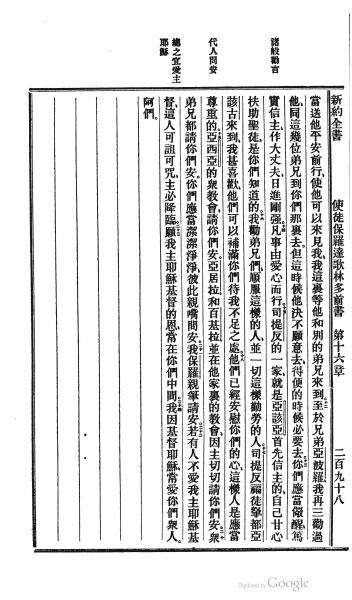 新約全書 使徒保羅達歌林多前書 第十六章 二百九十八
諸般勸言
代人問安
總之宜愛主
耶穌
當送他平安前行、使他可以來見我、我這裏等他和別的弟兄來到、至於兄弟亞波羅、我再三勸過
他、同這幾位弟兄到你們那裏去、但這時候他決不願意去、得便的時候必要去、你們應當儆醒、篤
實信主、作大丈夫、日進剛强、凡事由愛心而行、司提反的一家、就是亞該亞首先信主的、自己甘心
扶助聖徒、是你們知道的、我勸弟兄們、順服這樣的人、並一切這樣勤勞的人、司提反福徒拏都亞
該古來到、我甚喜歡、他們可以補滿你們待我不足之處、他們已經安慰你們的心、這樣人是應當
尊重的、亞西亞的衆教會、請你們安、亞居拉和百基拉、並在他家裏的教會、因主切切請你們安、衆
弟兄都請你們安、你們應當潔潔淨淨、彼此親嘴問安、我保羅親筆請安、若有人不愛我主耶穌基
督、這人可詛可咒、主必降臨、願我主耶穌基督的恩、常在你們中間、我因基督耶穌、常愛你們衆人、
阿們。
Digitized by Google